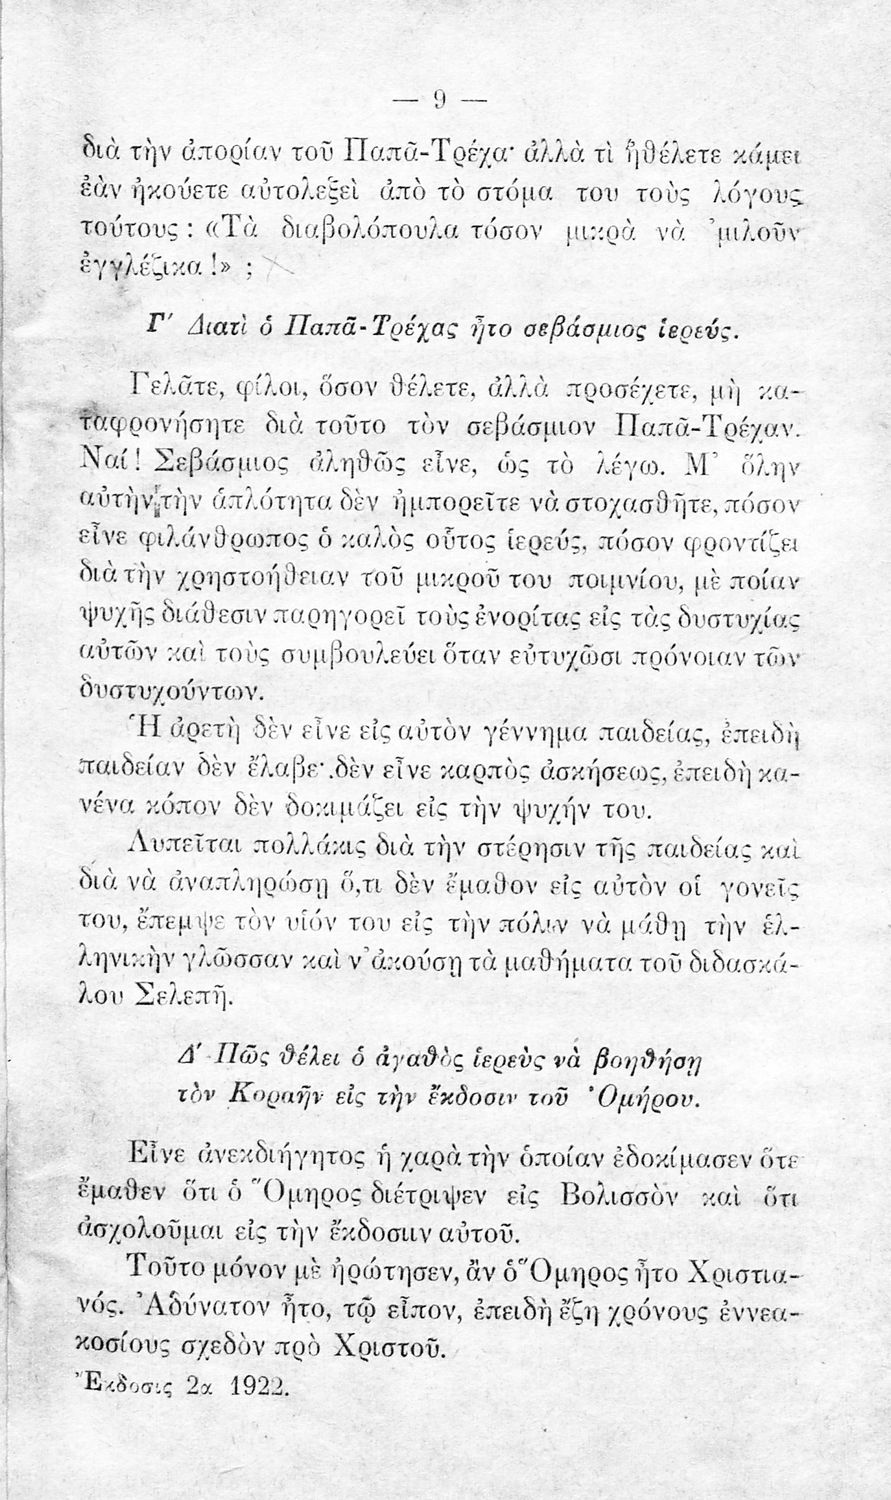 — 9 —
διὰ τὴν ἀπορίαν τοῦ Παπᾶ-Τρέχα· ἀλλὰ τὶ ἠθέλετε κάμει
ἐὰν ἠκούετε αὐτολεξεὶ ἀπὸ τὸ στόμα του τοὺς λόγους
τούτους : «Τὰ διαβολόπουλα τόσον μικρὰ νὰ ᾿μιλοῦν
ἐγγλέζικα !» ;
Γ′ Διατὶ ὁ Παπᾶ-Τρέχας ἦτο σεβάσμιος ἱερεύς.
Γελᾶτε, φίλοι, ὅσον θέλετε, ἀλλὰ προσέχετε, μὴ κα-
ταφρονήσητε διὰ τοῦτο τὸν σεβάσμιον Παπᾶ-Τρέχαν.
Ναί! Σεβάσμιος ἀληθῶς εἶνε, ὡς τὸ λέγω. Μ᾿ ὅλην
αὐτὴν τὴν ἁπλότητα δὲν ἠμπορεῖτε νὰ στοχασθῆτε, πόσον
εἶνε φιλάνθρωπος ὁ καλὸς οὗτος ἱερεύς, πόσον φροντίζει
διὰ τὴν χρηστοήθειαν τοῦ μικροῦ του ποιμνίου, μὲ ποίαν
ψυχῆς διάθεσιν παρηγορεῖ τοὺς ἐνορίτας εἰς τὰς δυστυχίας
αὐτῶν καὶ τοὺς συμβουλεύει ὅταν εὐτυχῶσι πρόνοιαν τῶν
δυστυχούντων.
Ἡ ἀρετὴ δὲν εἶνε εἰς αὐτὸν γέννημα παιδείας, ἐπειδὴ
παιδείαν δὲν ἔλαβε· δὲν εἶνε καρπὸς ἀσκήσεως, ἐπειδὴ κα-
νένα κόπον δὲν δοκιμάζει εἰς τὴν ψυχήν του.
Λυπεῖται πολλάκις διὰ τὴν στέρησιν τῆς παιδείας καὶ
διὰ νὰ ἀναπληρώσῃ ὅ,τι δὲν ἔμαθον εἰς αὐτὸν οἱ γονεῖς
του, ἔπεμψε τὸν υἱόν του εἰς τὴν πόλιν νὰ μάθῃ τὴν ἑλ-
ληνικὴν γλῶσσαν καὶ ν᾿ ἀκούσῃ τὰ μαθήματα τοῦ διδασκά-
λου Σελεπῆ.
Δ′ Πῶς θέλει ὁ ἀγαθὸς ἱερεὺς νὰ βοηθήσῃ
τὸν Κοραῆν εἰς τὴν ἔκδοσιν τοῦ Ὁμήρου.
Εἶνε ἀνεκδιήγητος ἡ χαρὰ τὴν ὁποίαν ἐδοκίμασεν ὅτε
ἔμαθεν ὅτι ὁ Ὅμηρος διέτριψεν εἰς Βολισσὸν καὶ ὅτι
ἀσχολοῦμαι εἰς τὴν ἔκδοσιιν αὐτοῦ.
Τοῦτο μόνον μὲ ἠρώτησεν, ἂν ὁ Ὅμηρος ἦτο Χριστια-
νός. Ἀδύνατον ἦτο, τῷ εἶπον, ἐπειδὴ ἔζη χρόνους ἐννεα-
κοσίους σχεδὸν πρὸ Χριστοῦ.
Ἔκδοσις 2α 1922.